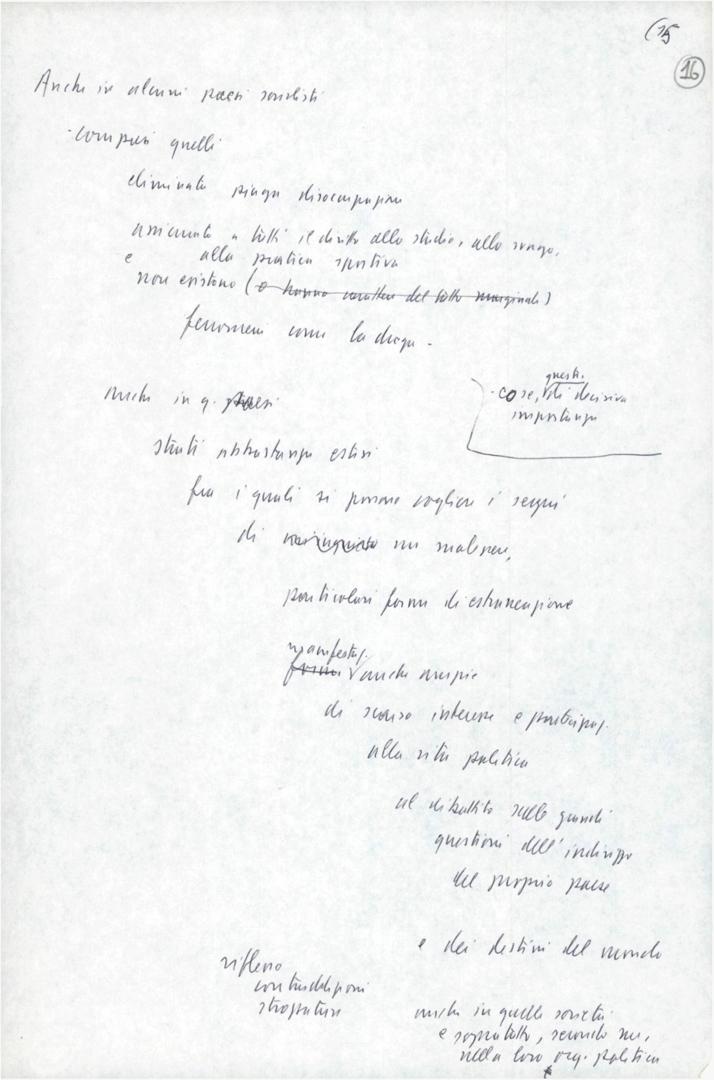 (15
16
Anche in alcuni paesi socialisti
- compresi quelli
eliminato piaga disoccupazione
assicurato a tutti il diritto allo studio, allo svago,
e alla pratica sportiva
non esistono (o hanno carattere del tutto marginale)
fenomeni come la droga -
questi.
- cose, di decisiva
importanza
anche in q. paesi
strati abbastanza estesi
fra i quali si possono cogliere i segni
di un malessere,
particolari forme di estraneazione
manifestaz.
forme anche ampie
di scarso interesse e partecipaz.
alla vita politica
al dibattito sulle grandi
questioni dell'indirizzo
del proprio paese
e dei destini del mondo
riflesso
contraddizioni
strozzature
anche in quelle società
e sopratutto, secondo noi,
nella loro org. politica